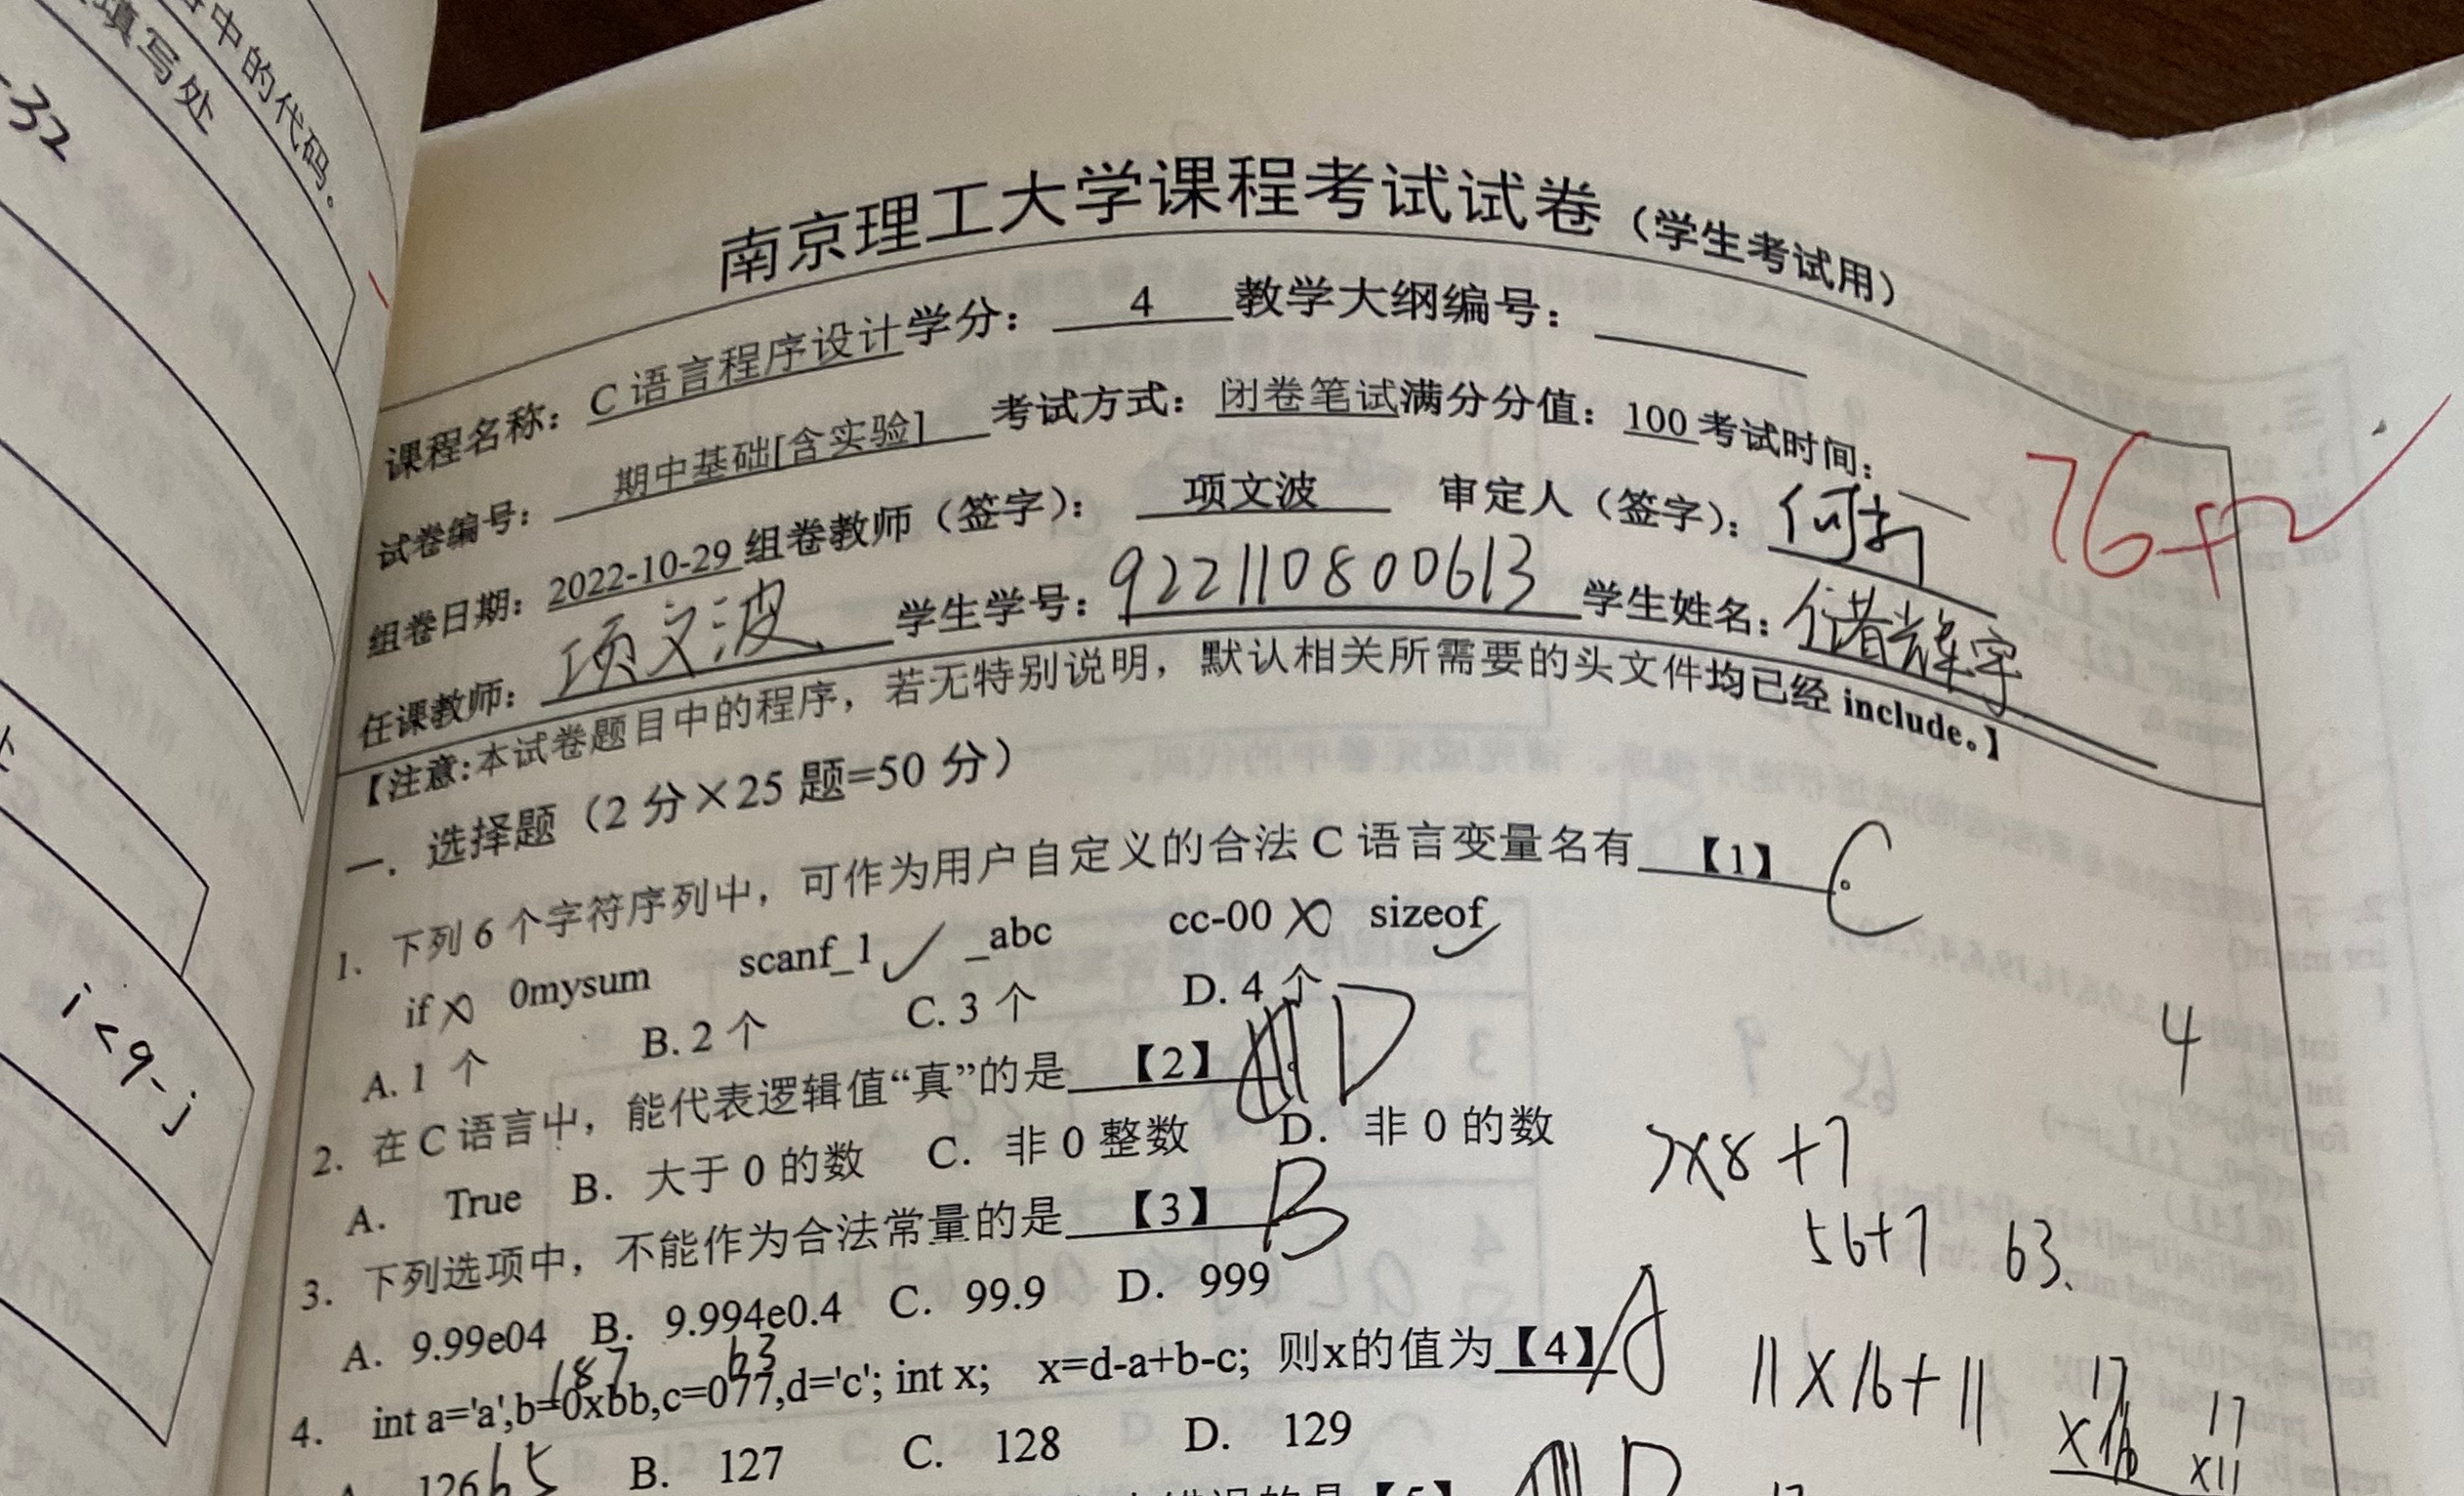 中的代码。
填写处
-32
i<9-j
南京理工大学课程考试试卷（学生考试用）
课程名称：C 语言程序设计学分： 4 教学大纲编号：
试卷编号： 期中基础[含实验] 考试方式：闭卷笔试满分分值：100 考试时间：
组卷日期：2022-10-29 组卷教师（签字）： 项文波 审定人（签字）：
76+2
任课教师：项文波 学生学号：922110800613 学生姓名：储
【注意:本试卷题目中的程序，若无特别说明，默认相关所需要的头文件均已经 include。】
一．选择题（2 分×25 题=50 分）
1. 下列 6 个字符序列中，可作为用户自定义的合法 C 语言变量名有 【1】 。 C
if × 0mysum scanf_1 ✓ _abc cc-00 × sizeof ✓
A. 1 个 B. 2 个 C. 3 个 D. 4 个
2. 在 C 语言中，能代表逻辑值“真”的是 【2】 D
A. True B. 大于 0 的数 C. 非 0 整数 D. 非 0 的数
3. 下列选项中，不能作为合法常量的是 【3】 B
A. 9.99e04 B. 9.994e0.4 C. 99.9 D. 999
187 63
4. int a='a',b=0xbb,c=077,d='c'; int x; x=d-a+b-c; 则x的值为【4】 A
A. 126 65 B. 127 C. 128 D. 129
【5】 D
4
7×8+7
56+7 63.
11×16+11
17
×16
17
×11